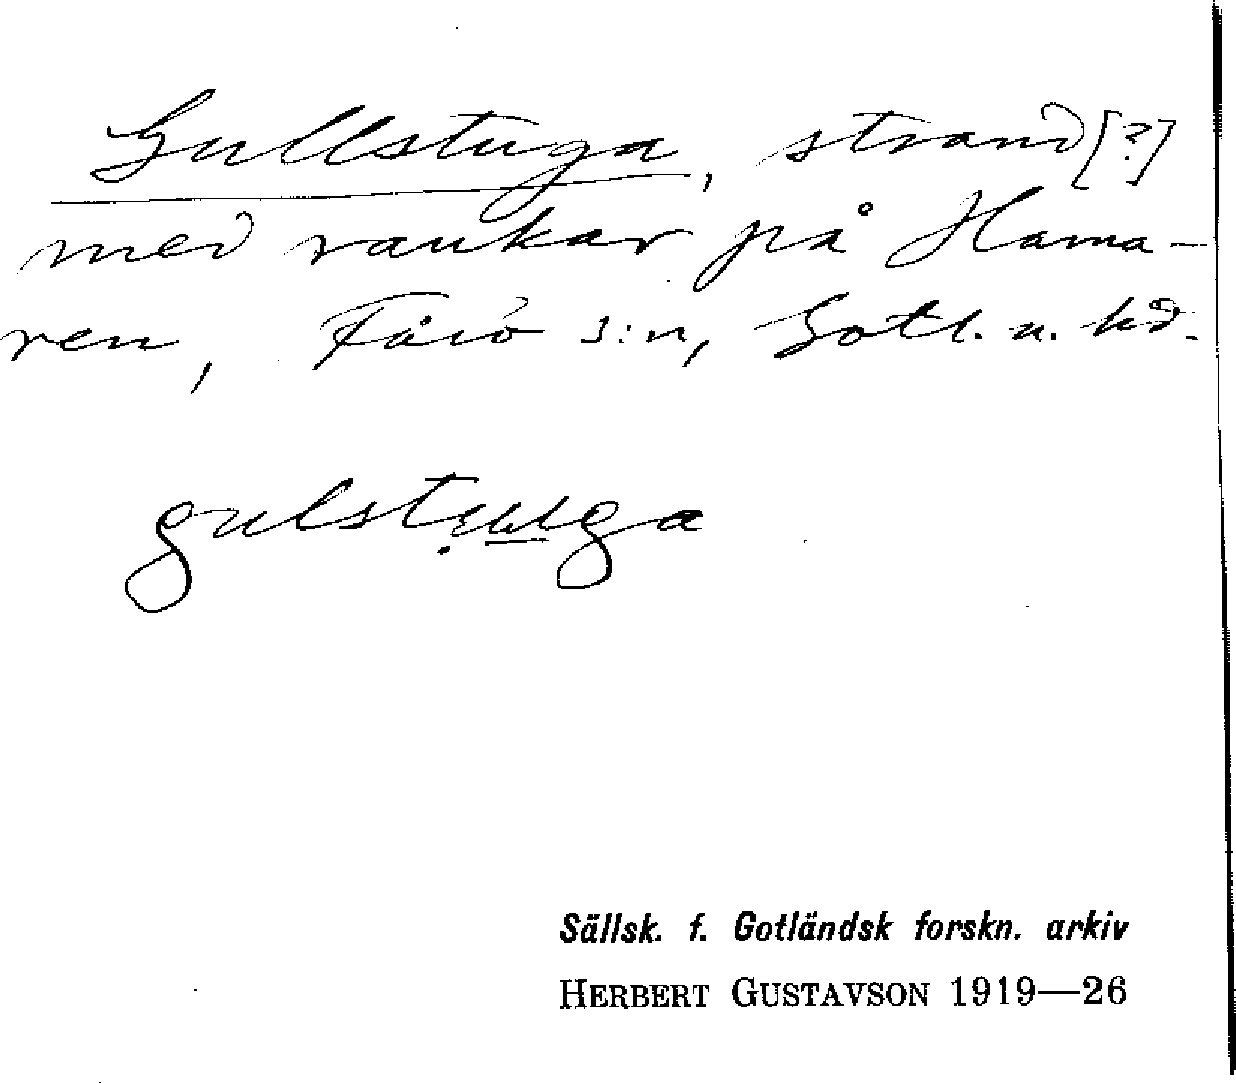 Gullstuga, strand [?]
med raukar på Hamma-
ren, Fårö s:n, Gotl. n. hd.
Sällsk. f. Gotländsk forskn. arkiv
HERBERT GUSTAVSON 1919—26